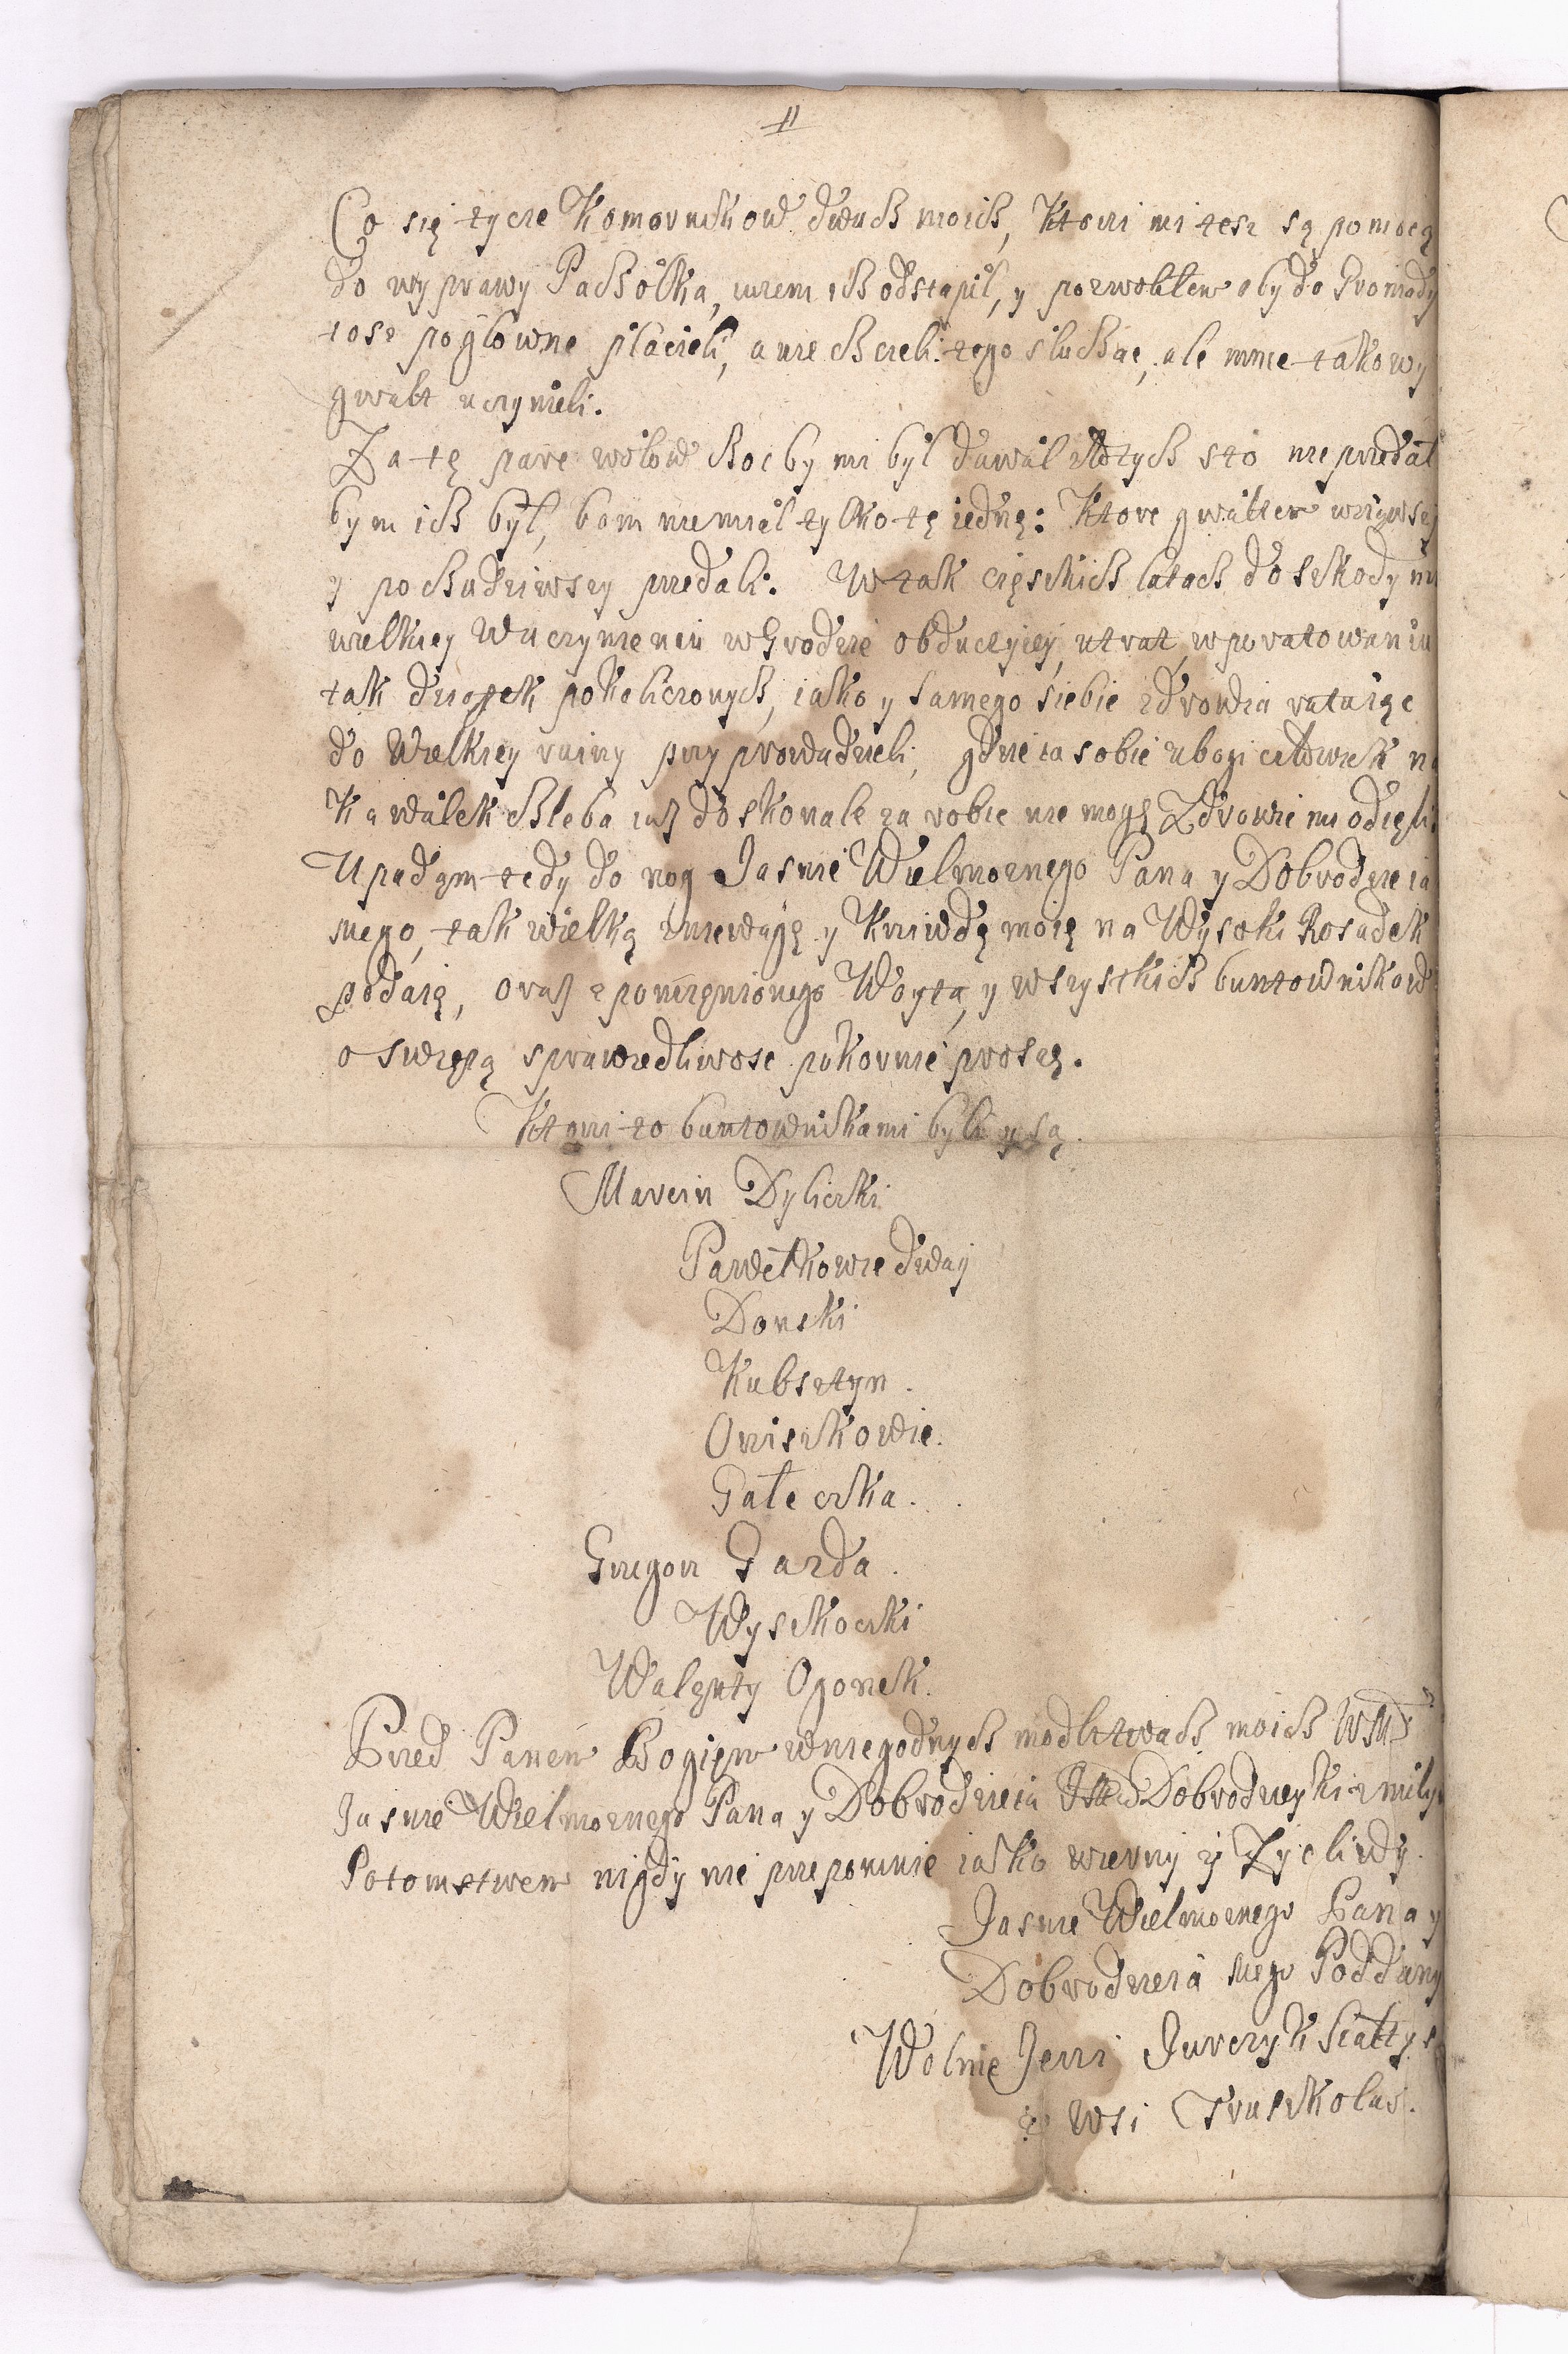 11
Co się tycze Komornikow dwuch moich, Ktorzi mi tesz są pomocą
do wyprawy Pachołka, wzem ich odstąpił, y pozwoliłem aby do Gromady
tosz pogłowne płacieli, a nie chcieli tego słuchac, ale mnie takowy
gwałt uczynieli.
Za tę pare wołow choc by mi był dawał złotych sto nie przedał
bym ich był, bom nie miał tylko tę iednę: Ktore gwałtem wziąwszy
y pochudziwszy przedali. W tak cięszkich latach do szkody mi
wielkiey W uczynieniu w Grodzie obdukcyiey, utrat, w poratowaniu
tak dziatek pokaliczonych, iako y samego siebie zdrowia ratuiąc
do Wielkiey ruiny przyprowadzieli, gdzie ia sobie ubogi człowiek na
Kawałek chleba iusz doskonale zarobic nie mogę Zdrowie mi odięli.
Upadam tedy do nog Jasnie Wielmoznego Pana y Dobrodzieia
mego, tak wielką zniewagę y Krziwdę moię na Wysoki Rosądek
podaię, oraz z pomienionego Woyta, y wszystkich buntownikow
o swiętą sprawiedliwosc pokornie proszę.
Ktorzi to buntownikami byli y są.
Marcin Dyliczki
Pawełkowie dway
Dorski
Kubsztyn.
Orziszkowie.
Gałeczka.
Grzegorz Gazda.
Wyszkoczki
Walęnty Ogonek.
Pzed Panem Bogięm w niegodnych modlitwach moich WM
Jasnie Wielmoznego Pana y Dobrodzieia JM Dobrodzieyki z miłym
Potomstwem nigdy nie przepomnie iako wierny y Zycliwy.
Jasnie Wielmoznego Pana y
Dobrodzieia mego Poddany
Wolnie Jerzi Jurczyk Scałtys
z wsi Truszkolas.